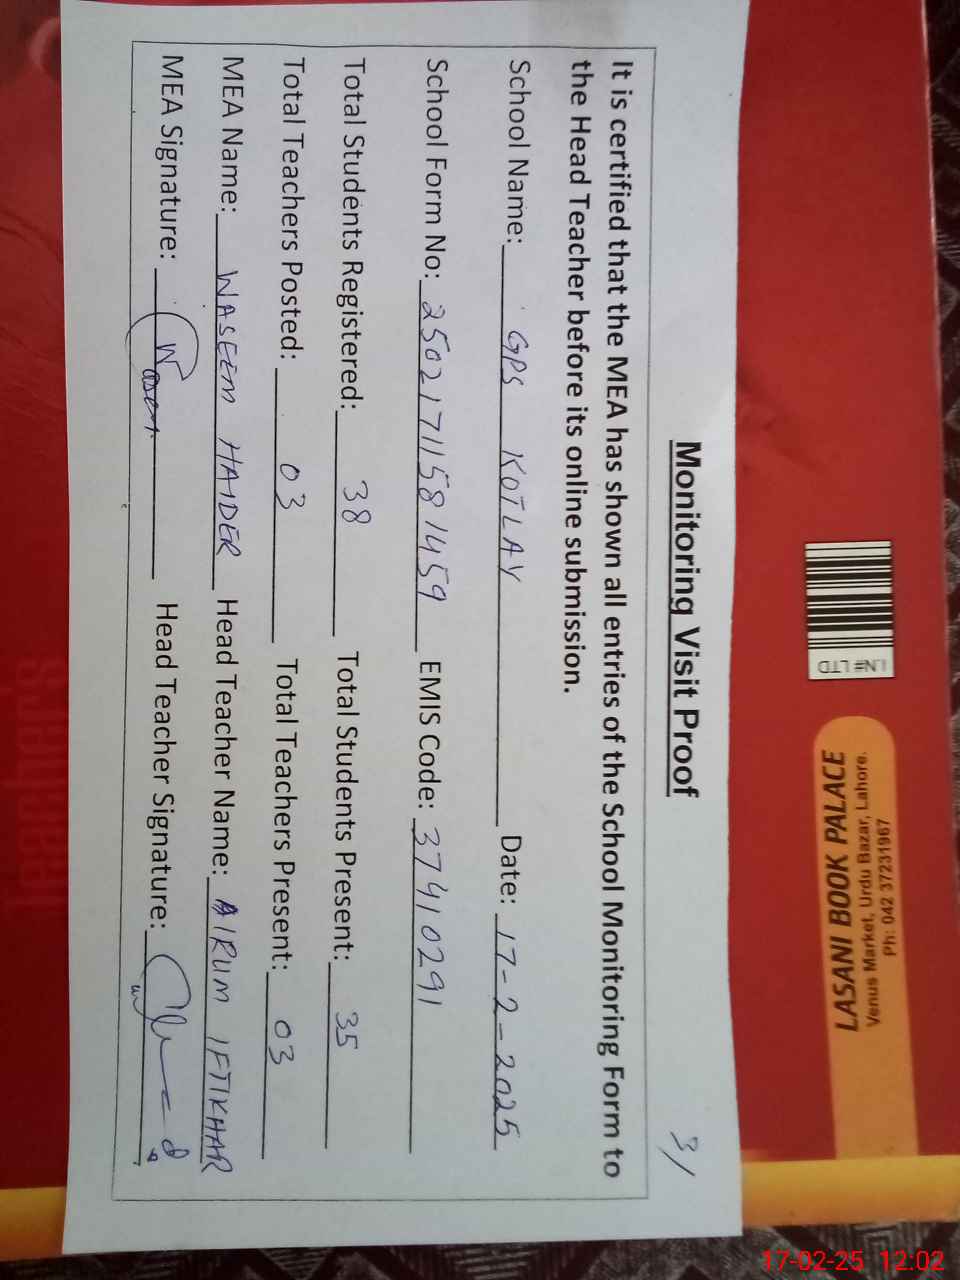 3/
Monitoring Visit Proof
It is certified that the MEA has shown all entries of the School Monitoring Form to
the Head Teacher before its online submission.
School Name: GPS KOTLAY Date: 17-2-2025
School Form No: 2502171158 1459 EMIS Code: 37410291
Total Students Registered: 38 Total Students Present: 35
Total Teachers Posted: 03 Total Teachers Present: 03
MEA Name: WASEEM HAIDER Head Teacher Name: AIRUM IFTIKHAR
MEA Signature: Waseem Head Teacher Signature:
LN#LTD
LASANI BOOK PALACE
Venus Market, Urdu Bazar, Lahore.
Ph: 042 37231967
17-02-25 12:02